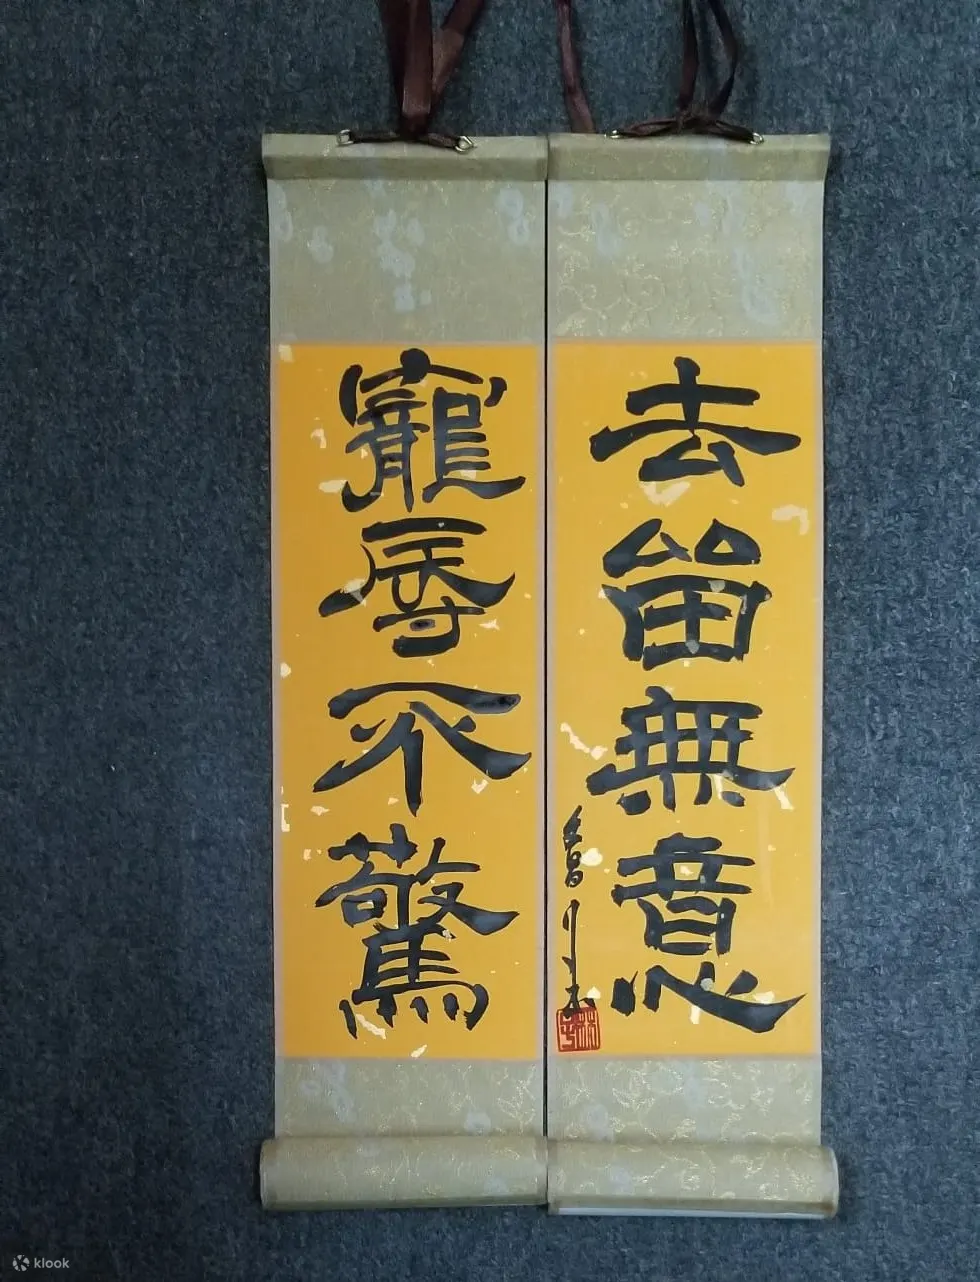 寵辱不驚
去留無意
klook